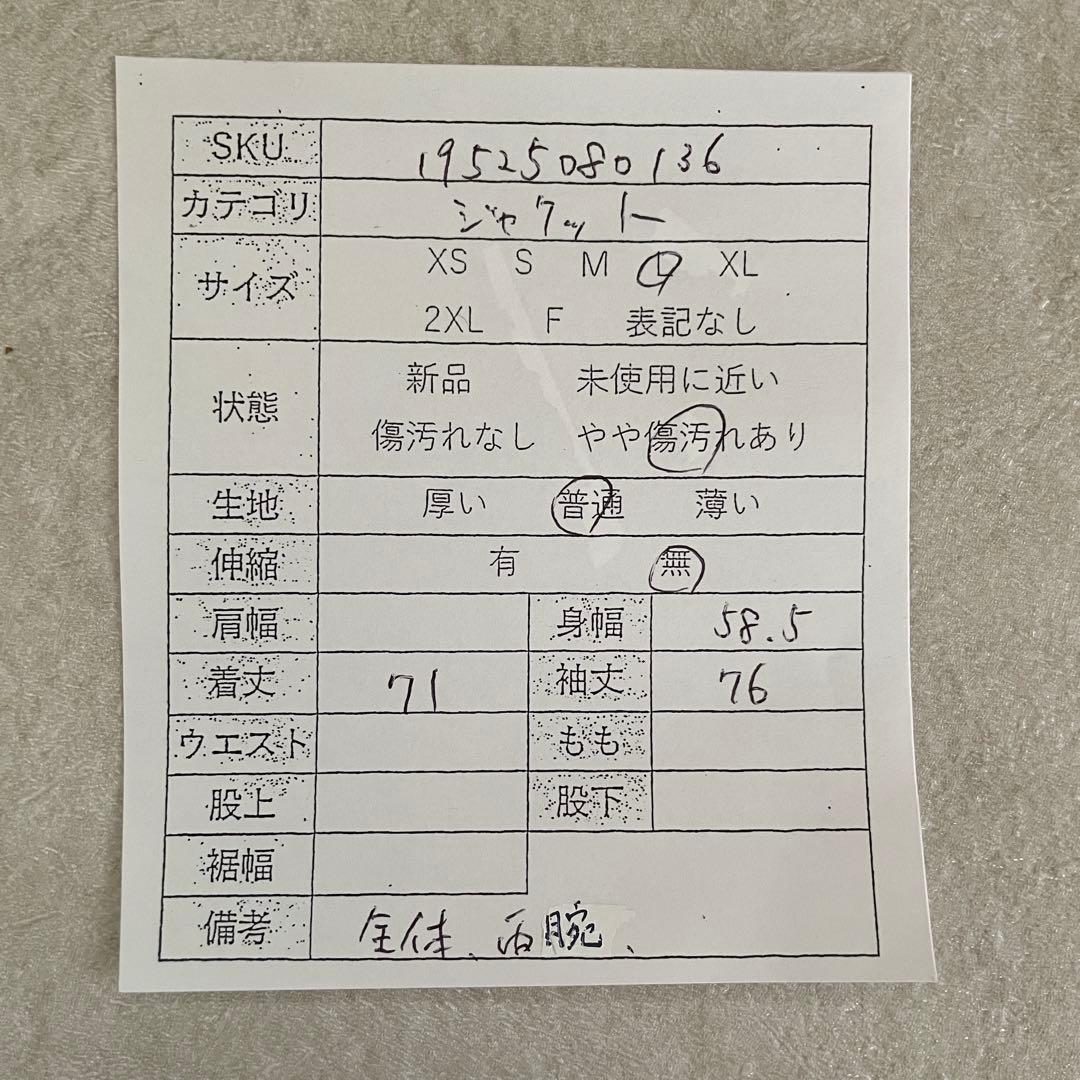 SKU 19525080136
カテゴリ ジャケット
サイズ XS S M L XL
2XL F 表記なし
状態 新品 未使用に近い
傷汚れなし やや傷汚れあり
生地 厚い 普通 薄い
伸縮 有 無
肩幅 身幅 58.5
着丈 71 袖丈 76
ウエスト もも
股上 股下
裾幅
備考 全体、両腕、